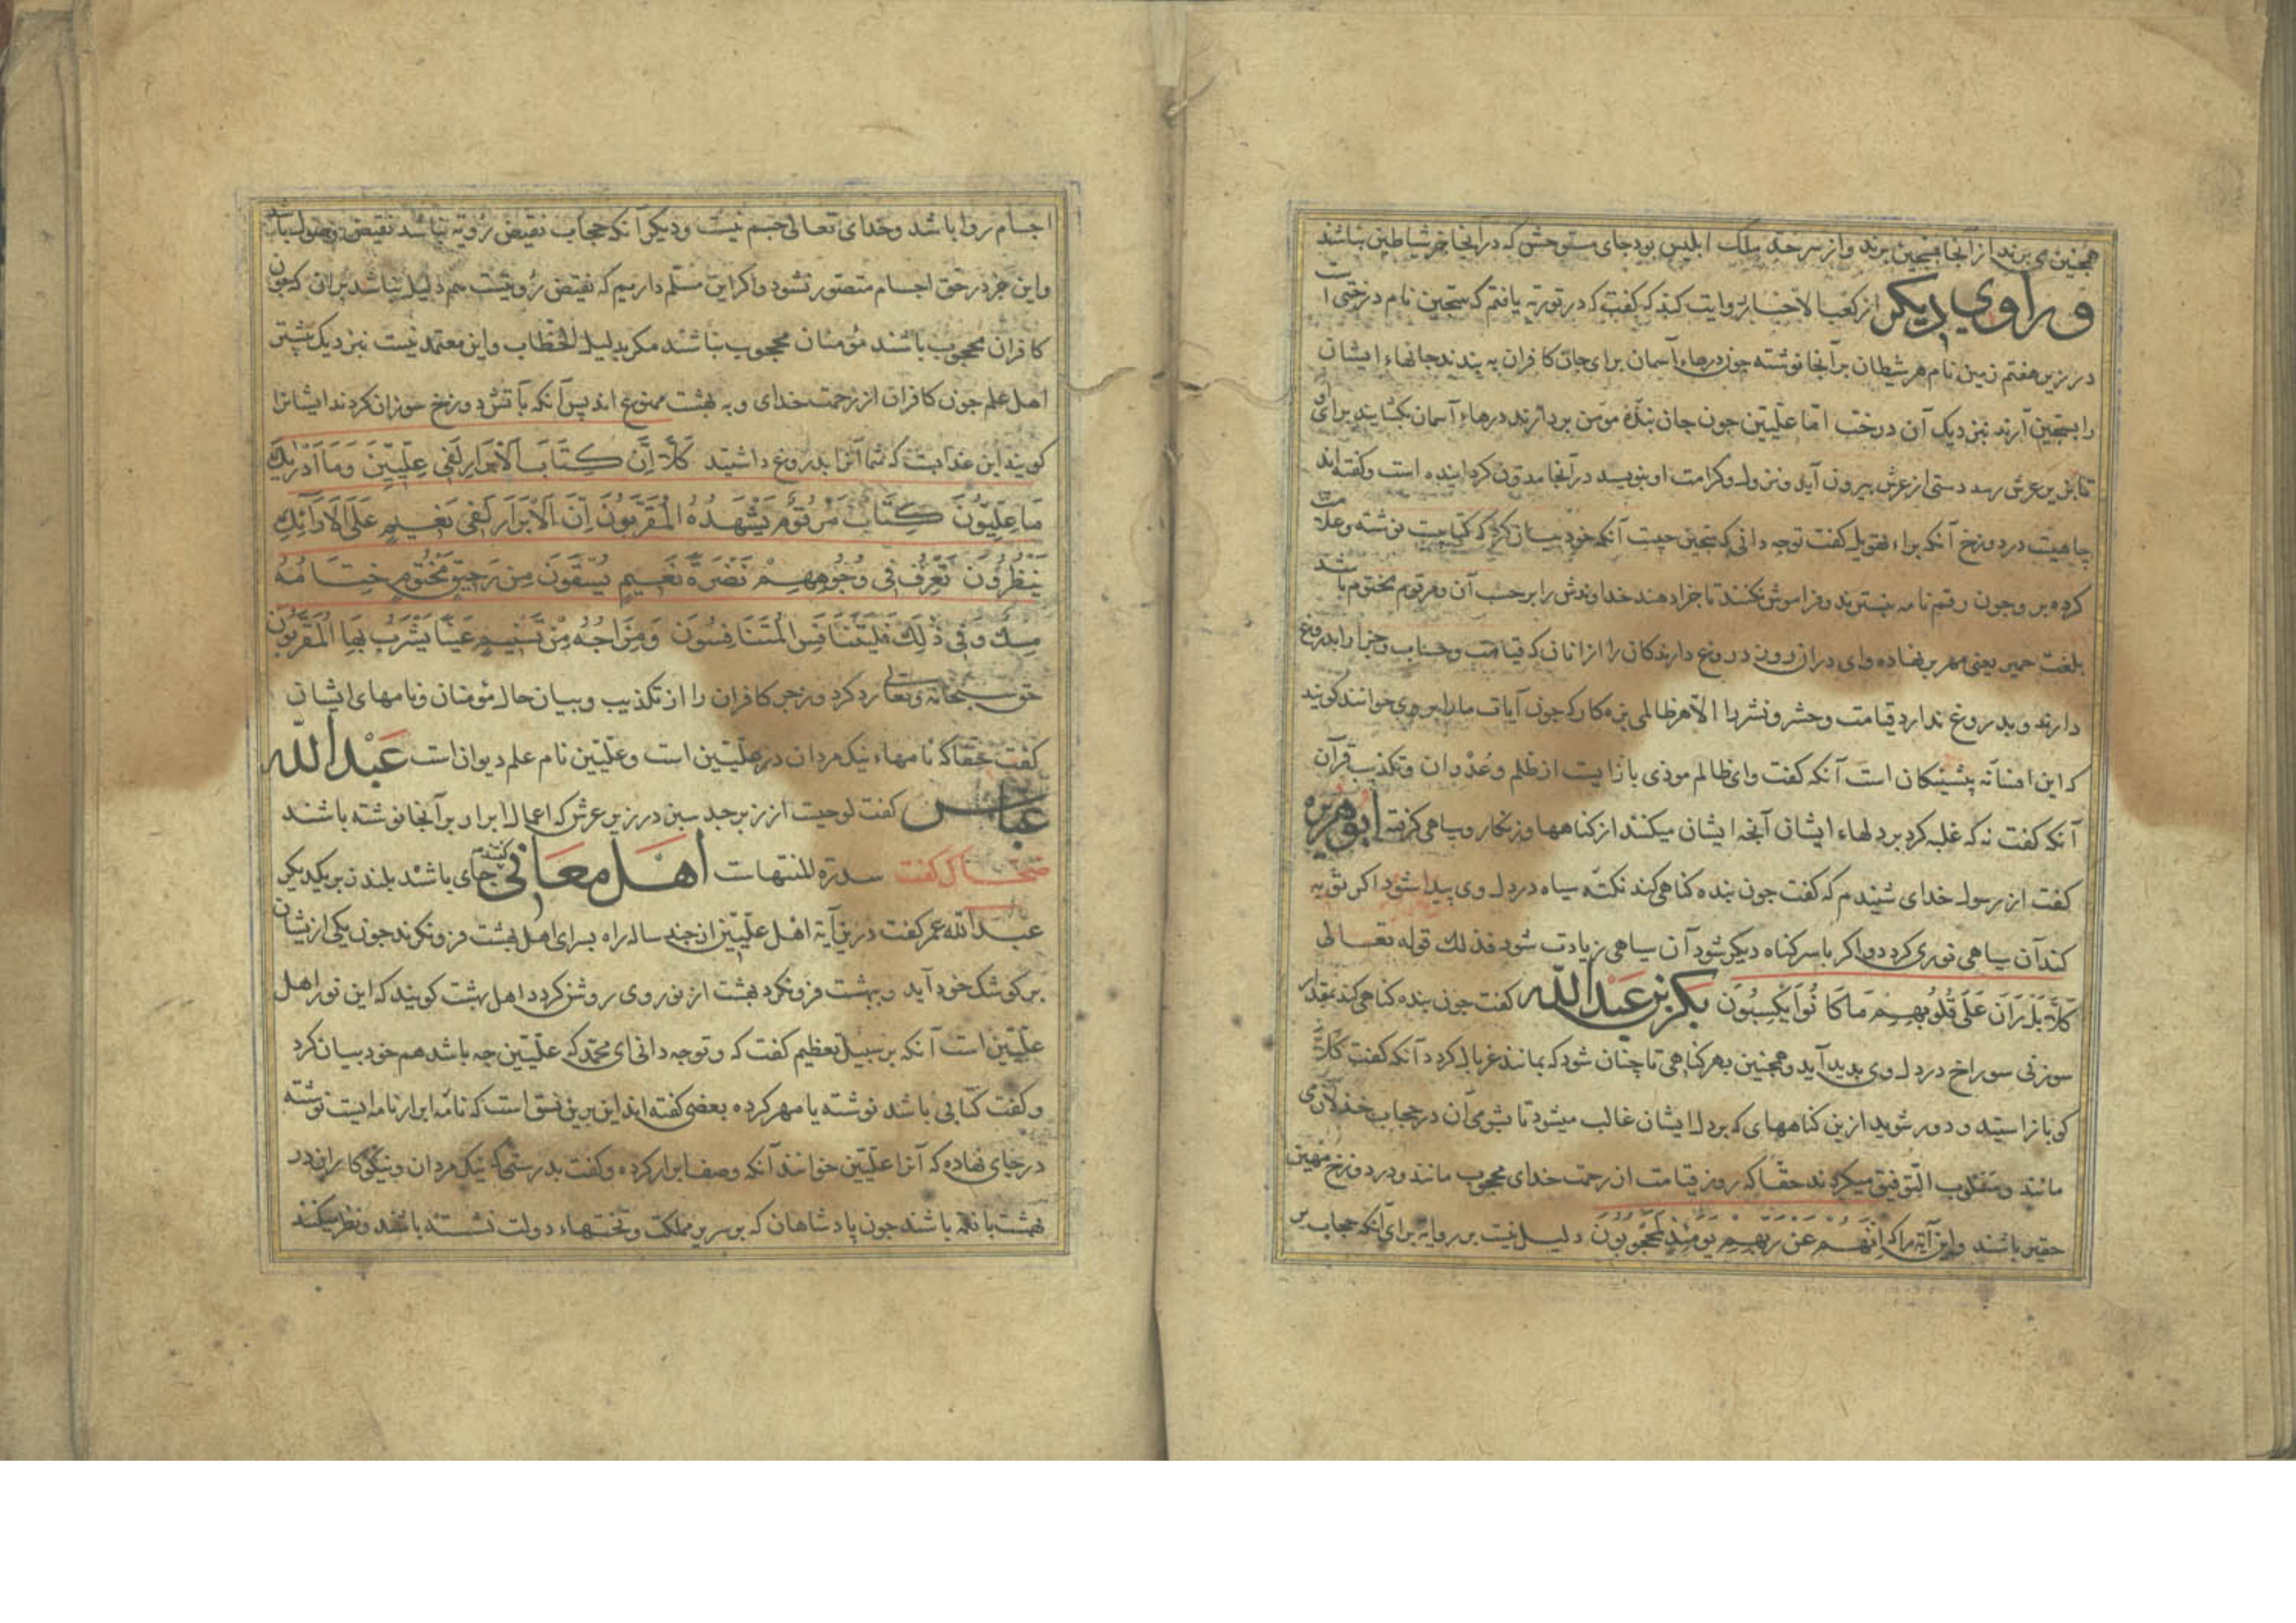 همچنین می برند از آنجا بسجین برند و از سر حد ملک ابلیس بود جای مستوحش که در آنجا جز شیاطین نباشند
و راوی دیکر از کعب الاحبار روایت کند که کفت که در توریة یافتم که سجین نام درختی است
در زیر هفتم زمین نام هر شیطان بر آنجا نوشته چون درهاء آسمان برای جان کافران به بندند جانهاء ایشان
را بسجین آرند نزدیک آن درخت امّا علّیّین جون جان بندهٔ مومن بردارند درهاء آسمان بکشایند برای او
تا بزیر عرش رسد دستی از عرش بیرون آید و نزول و کرامت او بنویسد در آنجا مدوّن کردانیده است و کفته اند
چاهیت در دوزخ آنکه براء تهویل کفت توجه دانی که سجین چیست آنکه خود بیان کرد که کتابیت نوشته و علامت
کرده بر وجون رقم نامه بنسترند و فراموش نکنند تا جزا دهند خداوندش را بر حسب آن و مرقوم مختوم باشد
بلغت حمیر یعنی مهر بر نهاده وای دران روز دروغ دارندکان را از انان که قیامت و حساب و جزا را بدروغ
دارند و بدروغ ندارد قیامت و حشر و نشر را الّا هر ظالمی بزه کار که جون آیات ما را بر وی خوانند کویند
که این افسانه پیشینکان است آنکه کفت وای ظالم موذی باز ایست از ظلم و عُدْوان و تکذیب قرآن
آنکه کفت نه که غلبه کرد بر دلهاء ایشان آنجه ایشان میکنند از کناهها و زنکار و سیاهی کرفته ابوهریره
کفت از رسول خدای شنیدم که کفت جون بنده کناهی کند نکته سیاه در دل وی پیدا شود اکر توبه
کند آن سیاهی نوری کردد و اکر باسر کناه دیکر شود آن سیاهی زیادت شود فذلک قوله تعالی
كَلَّا بَلْ رَانَ عَلَى قُلُوبِهِمْ مَا كَانُوا يَكْسِبُونَ بکر بن عَبْدالله کفت جون بنده کناهی کند بمقدار
سوزنی سوراخ در دل وی بدید آید و همچنین بهر کناهی تا چنان شود که بمانند غربال کردد آنکه کفت كَلَّا
کو باز ایستید و دور شوید ازین کناههای که بر دل ایشان غالب میشود تا بشومی آن در حجاب خذلان می
مانند و مسلوب التوفیق میکردند حقّا که روز قیامت از رحمت خدای محجوب مانند و در دوزخ مهین
حقیر باشند و این آیة را که اِنَّهُمْ عَنْ رَبِّهِمْ يَوْمَئِذٍ لَمَحْجُوبُونَ دلیل نیست بر روایه برای آنکه حجاب بر
اجسام روا باشد و خدای تعالی جسم نیست و دیکر آنکه حجاب نقیض رؤیة نباشد نقیض وصول باشد
و این جز در حق اجسام متصور نشود و اکر این مسلّم داریم که نقیض رؤیتست هم دلیل نباشد بران که چون
کافران محجوب باشند مؤمنان محجوب نباشند مکر بدلیل الخطاب و این معتمد نیست نزدیک بیشتر
اهل علم جون کافران از رحمت خدای و به بهشت ممنوع اند پس آنکه بآتش دوزخ سوزان کردند ایشانرا
کویند این عذابست که شما آنرا بدروغ داشتید كَلَّا اِنَّ كِتَابَ الْاَبْرَارِ لَفِي عِلِّيِّينَ وَمَا اَدْرٰيكَ
مَا عِلِّيُّونَ كِتَابٌ مَرْقُومٌ يَشْهَدُهُ الْمُقَرَّبُونَ اِنَّ الْاَبْرَارَ لَفِي نَعِيمٍ عَلَى الْاَرَائِكِ
يَنْظُرُونَ تَعْرِفُ فِي وُجُوهِهِمْ نَضْرَةَ نَعِيمٍ يُسْقَوْنَ مِنْ رَحِيقٍ مَخْتُومٍ خِتَامُهُ
مِسْكٌ وَفِي ذٰلِكَ فَلْيَتَنَافَسِ الْمُتَنَافِسُونَ وَمِزَاجُهُ مِنْ تَسْنِيمٍ عَيْنًا يَشْرَبُ بِهَا الْمُقَرَّبُونَ
حق سبحانه و تعالی رد کرد و زجر کافران را از تکذیب و بیان حال مؤمنان و نامهای ایشان
کفت حقا که نامهاء نیک مردان در علّیّین است و علّیّین نام علم دیوان است عَبْدالله
عباس کفت لوحیست از زبرجد سبز در زیر عرش که اعمال ابرار بر آنجا نوشته باشند
ضحاک کفت سدرة المنتهاست اهل معانی کفتند جای باشد بلند زبر یکدیکر
عبدالله عمر کفت درین آیة اهل علّیّین از چند ساله راه بسرای اهل بهشت فرو نکرند جون یکی ازیشان
بر کوشک خود آید و ببهشت فرو نکرد بهشت از نور وی روشن کردد اهل بهشت کویند که این نور اهل
علّیّین است آنکه بر سبیل تعظیم کفت که و توجه دانی ای محمد که علّیّین جه باشد هم خود بیان کرد
و کفت کتابی باشد نوشته یا مهر کرده بعضی کفته اند این برین نسق است که نامهٔ ابرار نامه ایست نوشته
در جای نهاده که آنرا علّیّین خوانند آنکه وصف ابرار کرده و کفت بدرستی که نیک مردان و نیکو کاران در
بهشت با نعمه باشند جون پادشاهان که بر سریر مملکت و تختهاء دولت نشسته باشند و نظر میکنند